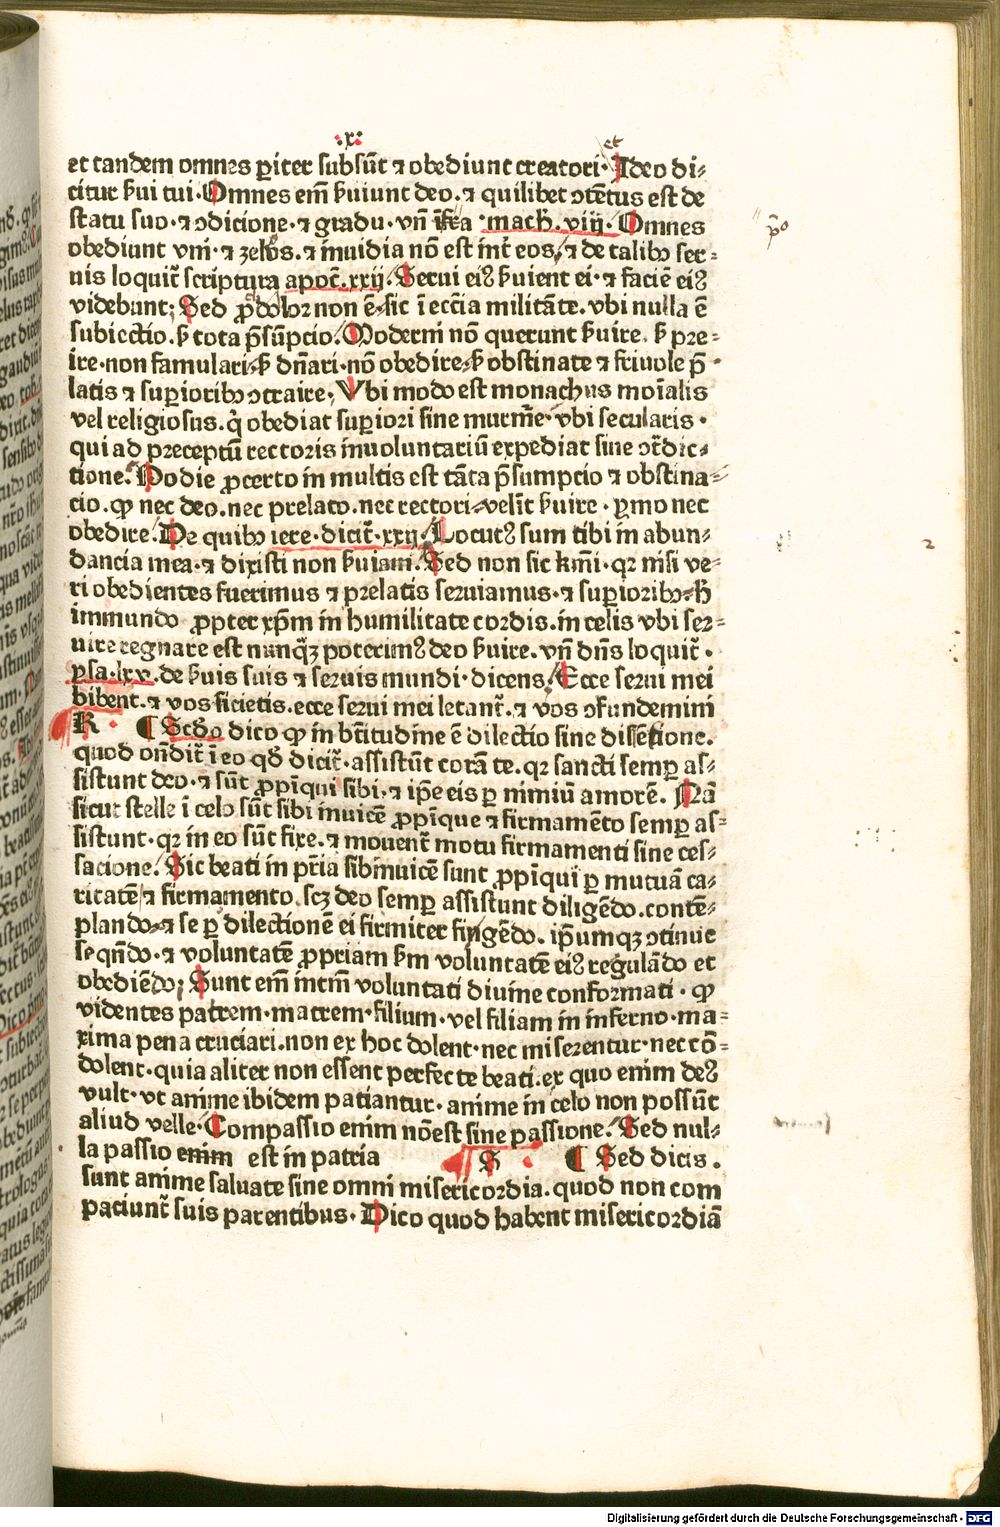 :x:
et
et tandem omnes ꝑiter subsūt ⁊ obediunt creatori· Ideo di⸗
citur ẜui tui· Omnes em̄ ẜuiunt deo. ⁊ quilibet ↄtētus est de
statu suo· ⁊ ↄdicione· ⁊ gradu· vn̄ īfra ·mach. viij. Omnes
p̄o
obediunt vni· ⁊ zelus. ⁊ inuidia nō est int̄ eos, ⁊ de talibꝫ ser⸗
uis loquit̄ scriptura apoc̄. xxij. Serui eiꝰ ẜuient ei· ⁊ faciē eiꝰ
videbunt; Sed ꝓdolor non ē sic ī ecc̄ia militāte. vbi nulla ē
subiectio. ẜ tota p̄sūpcio. Moderni nō querunt ẜuire. ẜ pre⸗
ire· non famulari· ẜ dn̄ari· nō obedire· ẜ obstinate ⁊ friuole p̄⸗
latis ⁊ suꝑioribꝫ ↄtraire. Vbi modo est monachus moīalis
vel religiosus. q̇ obediat suꝑiori sine murm̄e· vbi secularis·
qui ad preceptū rectoris inuoluntariū expediat sine ↄt̄dic⸗
tione. Hodie ꝓcerto in multis est tāta p̄sumpcio ⁊ obstina⸗
cio. ꝙ nec deo. nec prelato. nec rectori velit̄ ẜuire· ꝑmo nec
obedire. De quibꝫ iere· dicit̄· xxij. Locutꝰ sum tibi in abun⸗
2
dancia mea· ⁊ dixisti non ẜuiam. Sed non sic km̄i· qꝛ nisi ve⸗
ri obedientes fuerimus ⁊ prelatis seruiamus· ⁊ suꝑioribꝫ
immundo ꝓpter xp̄m in humilitate cordis. in celis vbi ser⸗
uire regnare est nunqꝫ poterimꝰ deo ẜuire. vn̄ dn̄s loquit̄·
psa· lxv. de ẜuis suis ⁊ seruis mundi· dicens. Ecce serui mei
bibent. ⁊ vos sicietis. ecce serui mei letant̄. ⁊ vos ↄfundemini
R · ¶ Scd̄o dico ꝙ in bt̄itudīne ē dilectio sine dissensione.
quod on̄dit̄ ī eo qd̄ dicit̄· assistūt corā te. qꝛ sancti semꝑ as⸗
sistunt deo· ⁊ sūt ꝓpīqui sibi, ⁊ ip̄e eis ꝑ nimiū amorē. Nā
sicut stelle ī celo sūt sibi inuicē ꝓpīque ⁊ firmamēto semꝑ as⸗
sistunt· qꝛ in eo sūt fixe. ⁊ mouent̄ motu firmamenti sine ces⸗
sacione. Sic beati in pr̄ia sibīnuicē sunt ꝓpīqui ꝑ mutuā ca⸗
ritatē ⁊ firmamento. scꝫ deo semꝑ assistunt diligēdo. contē⸗
plando· ⁊ se ꝑ dilectionē ei firmiter fingēdo. ip̄umqꝫ ↄtinue
seqn̄do· ⁊ voluntatē ꝓpriam ẜm voluntatē eiꝰ regulādo et
obediēdo; Sunt em̄ intm̄ voluntati diuine conformati· ꝙ
videntes patrem· matrem· filium· vel filiam in inferno· ma⸗
xima pena cruciari. non ex hoc dolent· nec miserentur· nec cō⸗
dolent. quia aliter non essent perfecte beati. ex quo enim deꝰ
vult· vt anime ibidem patiantur· anime in celo non possūt
aliud velle· Compassio enim nōest sine passione. Sed nul⸗
la passio enim est in patria S · ¶ Sed dicis.
sunt anime saluate sine omni misericordia. quod non com
paciunt̄ suis parentibus· Dico quod habent misericordiā
Digitalisierung gefördert durch die Deutsche Forschungsgemeinschaft - DFG